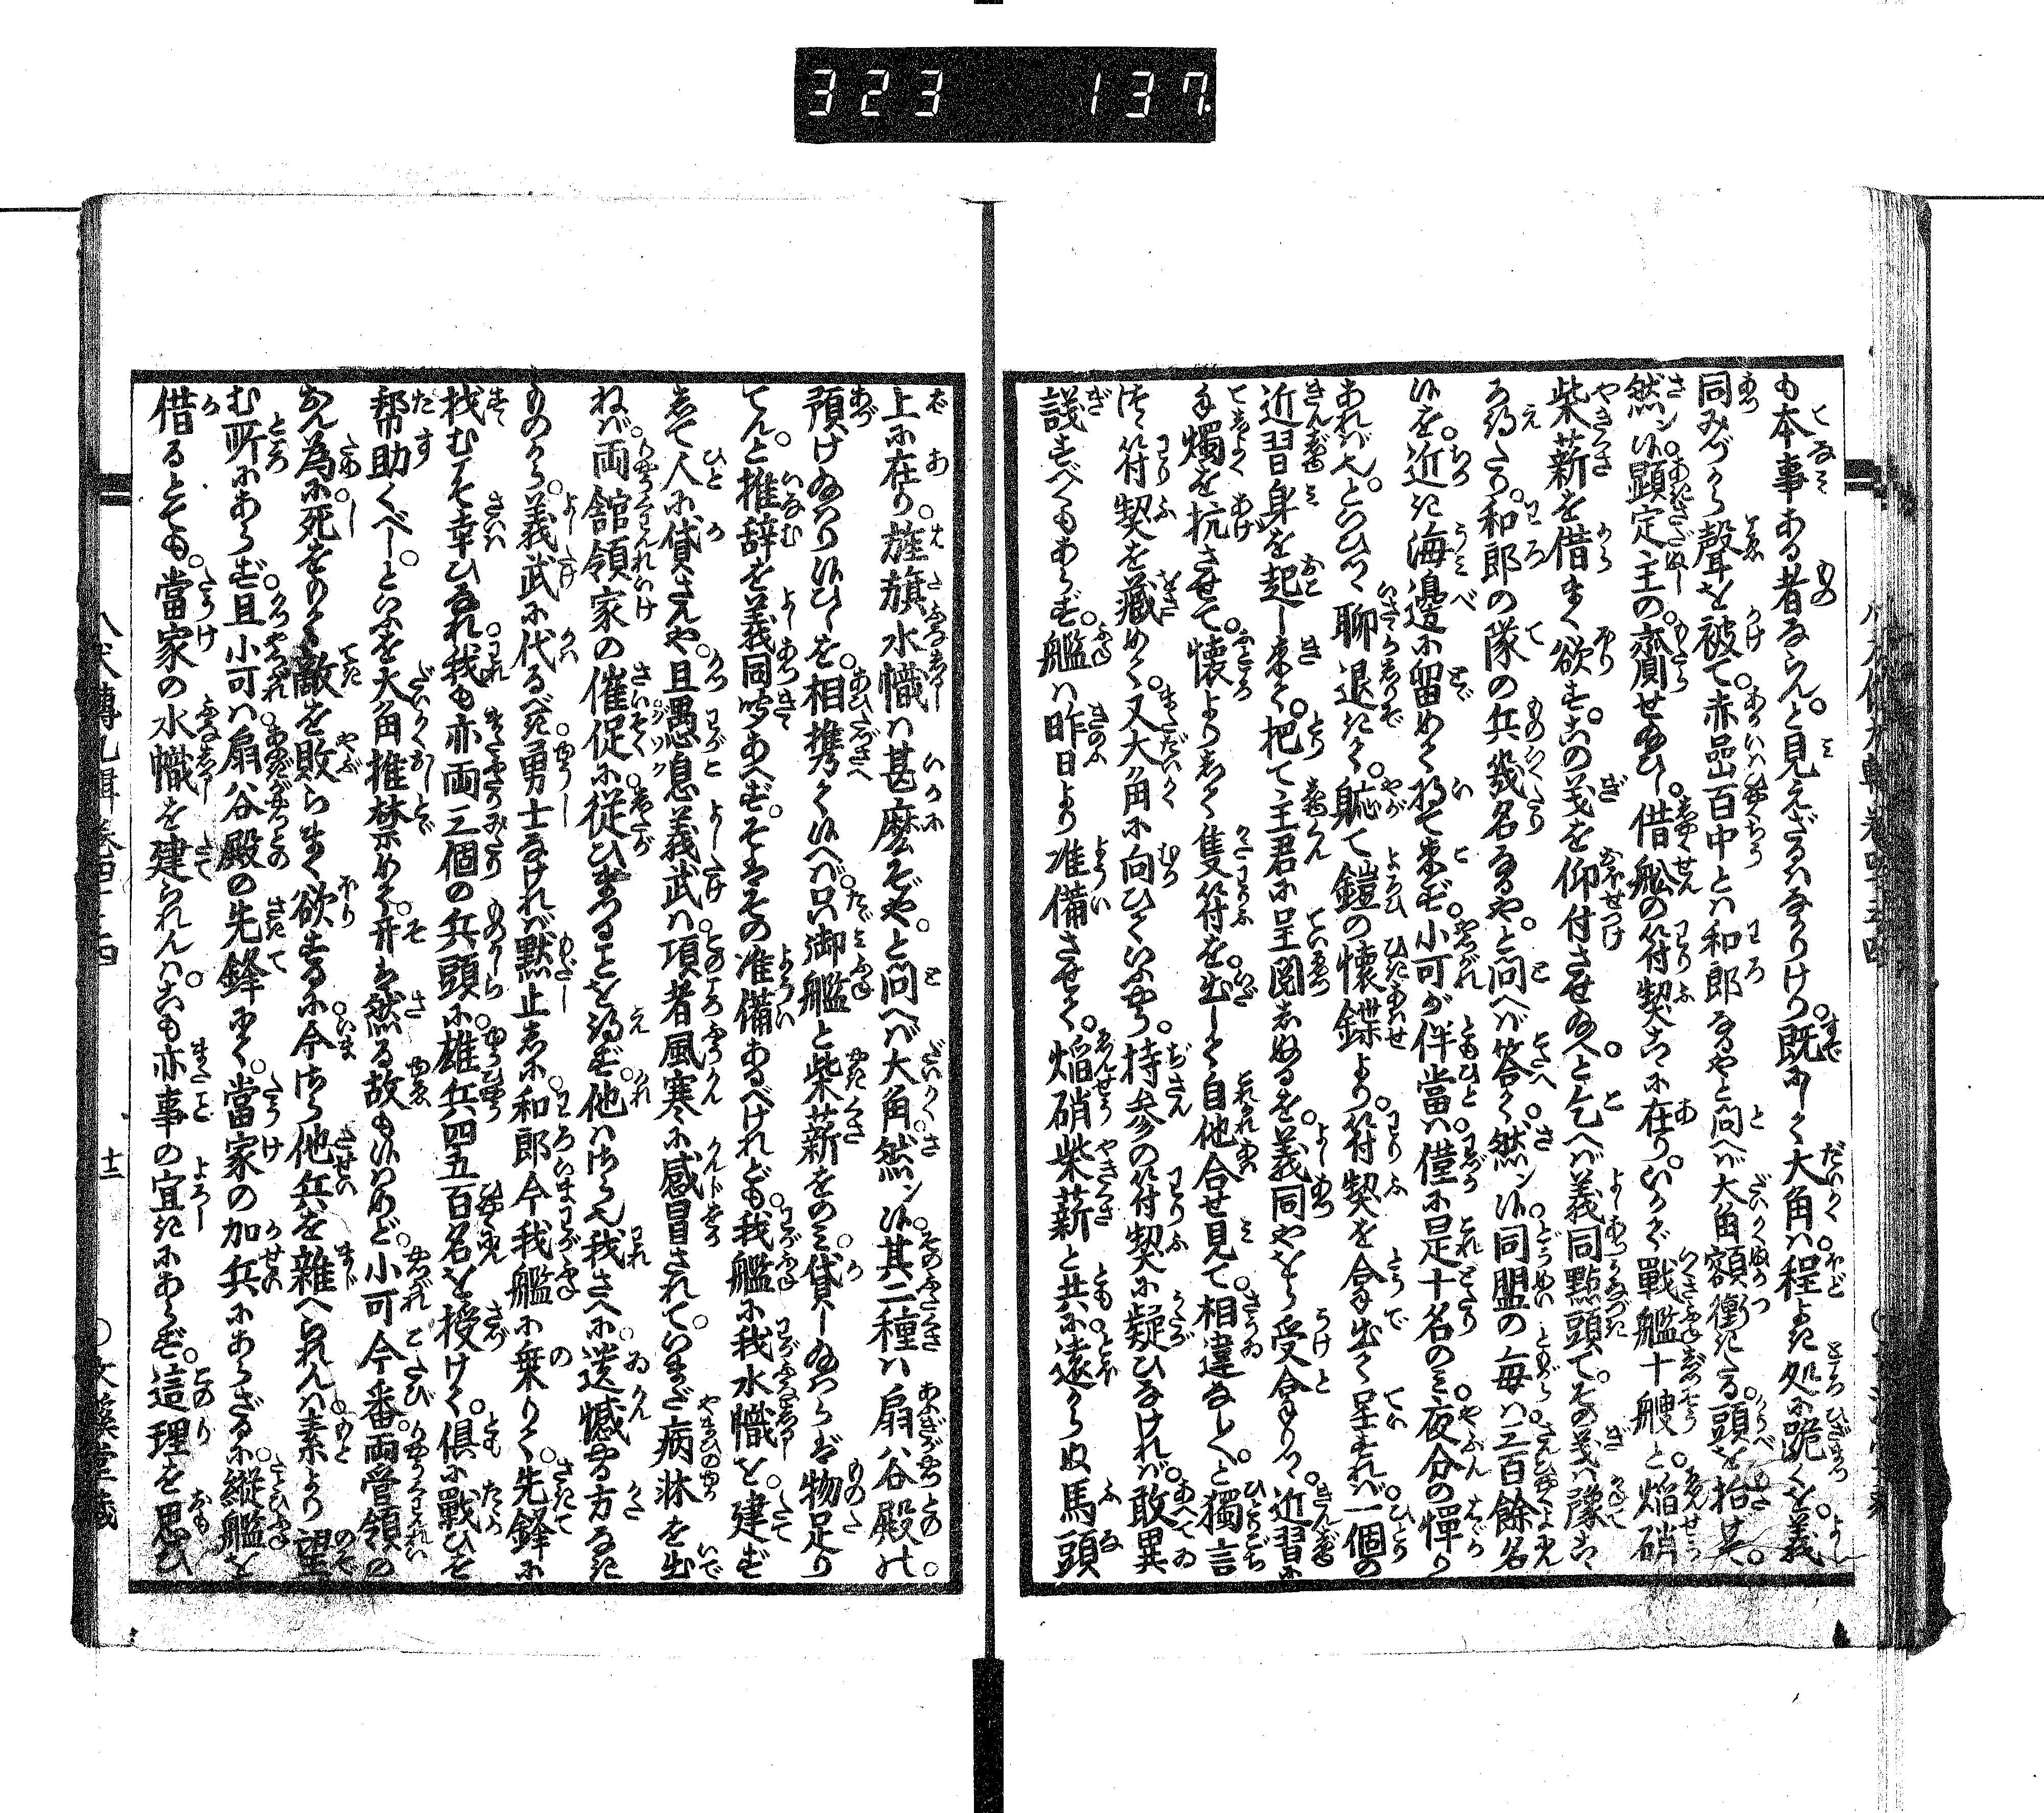 323 137
も本事ある者ならんと見えざるはなかりけり。既にして大角は程よき処に跪くを義
同みづから聲を被て赤嵒百中とは和郎なるやと問へば大角額衝きたる頭を抬。某。
然ン候。顕定主の齎せ給ひし借舩の符契こゝに在り。いかで戦艦十艘と焔硝
柴薪を借まく欲す。この義を仰付させ給へと乞へば義同點頭て。その義は豫こゝ
ろ得たり。和郎の隊の兵幾名なるや。と問へば答て然ン候同盟の毎は三百餘名
候を。近き海邊に留めて将て来ず。小可が伴當は僅に是十名のみ。夜分の憚り
あれば也。といひつゝ聊退きて。軈て鎧の懐鐷より。符契を拿出て呈すれば一個の
近習身を起し来て。把て主君に呈閲しぬるを。義同やをら受拿りつゝ。近習に
手燭を抗させて。懐よりしく隻符を。出して自他合せ見て。相違なし。と獨言
つゝ符契を蔵めて。又大角に向ひていふやう。持参の符契に疑ひなければ。敢異
議すべくもあらず。艦は昨日より准備させて。焔硝柴薪と共に遠からぬ馬頭
上に在り。旌旗水幟は甚麽ぞや。と問へば大角然ン候。其二種は扇谷殿の。
預け給はり候ひしを。相携て候へば。只御艦と柴薪をのみ貸し給はらば物足り
てん。と推辞を義同聞あへず。そはその准備あるべけれども。我艦に我水幟を。建ず
して人に貸さんや。且愚息義武は。項者風寒に感冒されて。いまだ病牀を出
ねば。両舘領家の催促に。従ひまつることを得ず。他はさら也我さへに。遺憾やる方なき
ものから。義武に代るべき。勇士なければ黙止しに。和郎今我艦に乗りて。先鋒に
找むこそ幸ひなれ。我も亦両三個の兵頭に。雄兵四五百名を授けて。倶に戦ひを
帮助くべし。といふを大角推禁めて。开は然る故も候はめど。小可今番両管領の
おん為に。死をもて敵を敗らまく欲するに。今さら他兵を雑へられんは素より望
む所にあらず。且小可は扇谷殿の先鋒にて。當家の加兵にあらざるに。縦艦を
借るとても。當家の水幟を建られんは。これも亦事の宜きにあらず。這理を思ひ
八犬傳九輯巻四十四
十二
○文溪堂藏